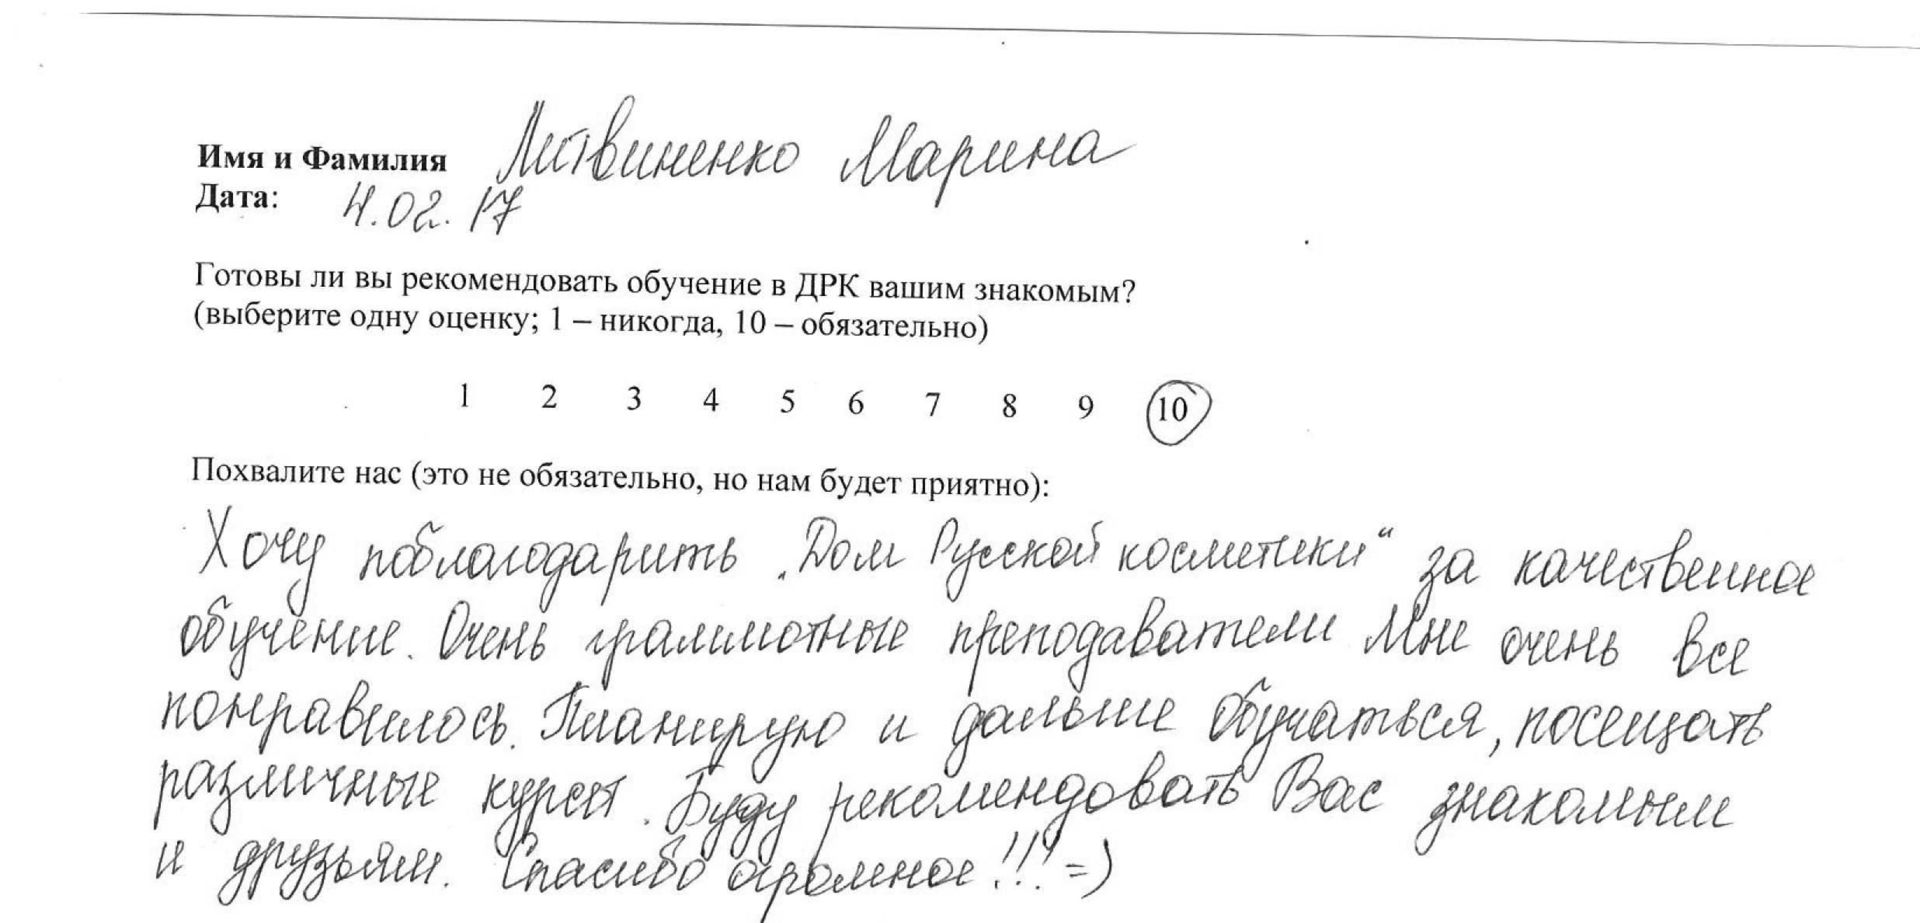 Имя и Фамилия Литвиненко Марина
Дата: 4.02.17
Готовы ли вы рекомендовать обучение в ДРК вашим знакомым?
(выберите одну оценку; 1 – никогда, 10 – обязательно)
1 2 3 4 5 6 7 8 9 10
Похвалите нас (это не обязательно, но нам будет приятно):
Хочу поблагодарить „Дом Русской косметики“ за качественное
обучение. Очень грамотные преподаватели Мне очень все
понравилось. Планирую и дальше обучаться, посещать
различные курсы. Буду рекомендовать Вас знакомым
и друзьям. Спасибо огромное!!! =)